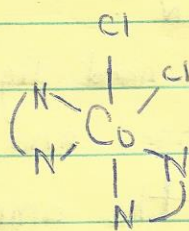 Cl
Cl
N
Co
N
N
N